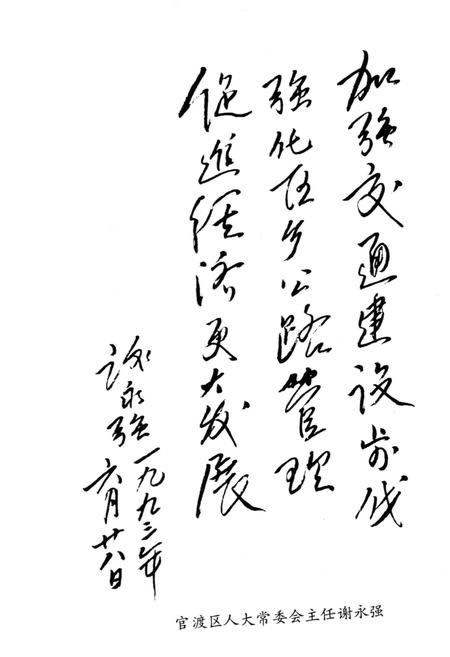 加强交通建设步伐
强化区乡公路管理
促进经济更大发展
谢永强
一九九三年
六月廿八日
官渡区人大常委会主任谢永强